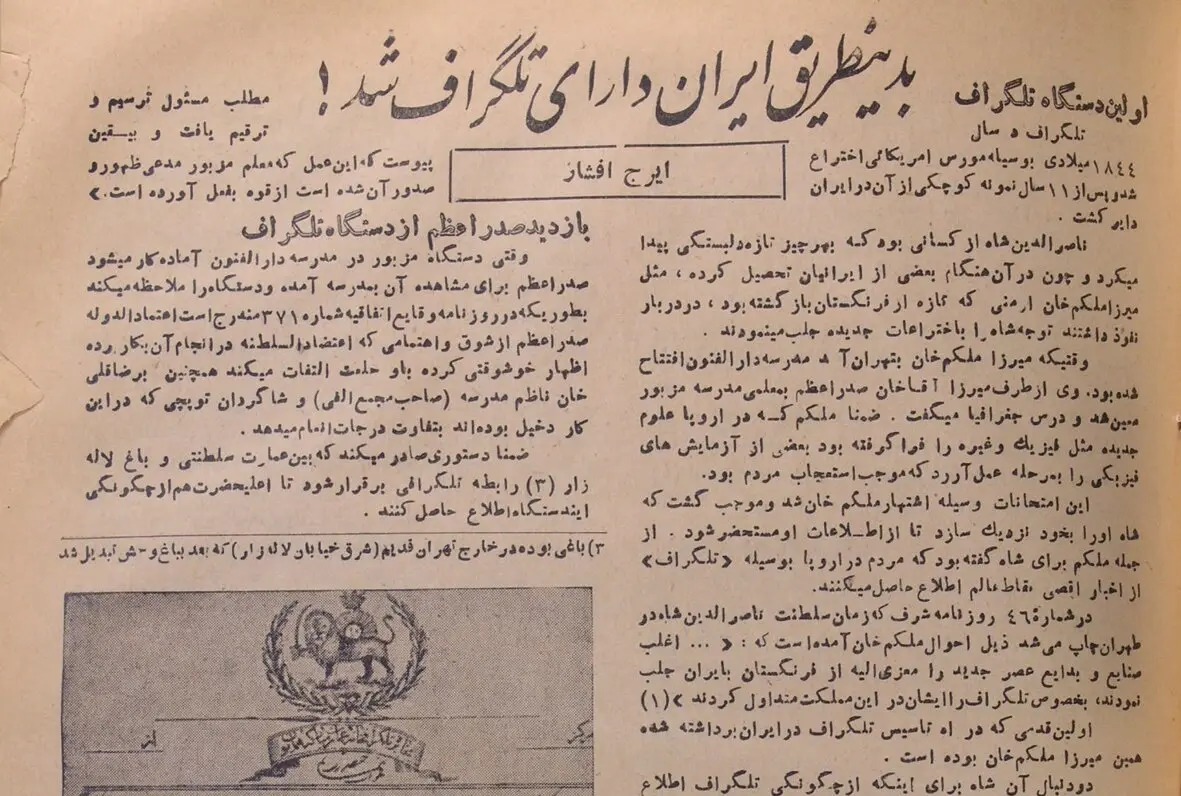 بدینطریق ایران دارای تلگراف شد!
ایرج افشار
اولین دستگاه تلگراف
تلگراف د سال
۱۸٤٤ میلادی بوسیله مورس امریکائی اختراع
شد و پس از ۱۱ سال نمونه کوچکی از آن در ایران
دایر گشت .
ناصرالدین شاه از کسانی بود که بهر چیز تازه دلبستگی پیدا
میکرد و چون در آن هنگام بعضی از ایرانیان تحصیل کرده ، مثل
میرزا ملکم خان ارمنی که تازه از فرنگستان باز گشته بود ، در دربار
نفوذ داشتند توجه شاه را باختراعات جدیده جلب مینمودند .
وقتیکه میرزا ملکم خان بتهران آ مد مدرسه دارالفنون افتتاح
شده بود. وی از طرف میرزا آقاخان صدراعظم بمعلمی مدرسه مزبور
معین شد و درس جغرافیا میگفت . ضمنا ملکم کـه در اروپا علوم
جدیده مثل فیزیك و غیره را فرا گرفته بود بعضی از آزمایش های
فیزیکی را بمرحله عمل آورد که موجب استعجاب مردم بود.
این امتحانات وسیله اشتهار ملکم خان شد و موجب گشت که
شاه اورا بخود نزدیك سازد تا از اطلاعات او مستحضر شود . از
جمله ملکم برای شاه گفته بود که مردم در اروپا بوسیله «تلگراف»
از اخبار اقصی نقاط عالم اطلاع حاصل میکنند.
در شمارهٔ ٤٦ روزنامه شرف که زمان سلطنت ناصرالدین شاه در
طهران چاپ می شد ذیل احوال ملکم خان آمده است که : « ... اغلب
صنایع و بدایع عصر جدید را معزی الیه از فرنگستان بایران جلب
نمودند، بخصوص تلگراف را ایشان در این مملکت متداول کردند »(۱)
اولین قدمی که در اه تاسیس تلگراف در ایران برداشته شده
همین میرزا ملکم خان بوده است .
دودنبال آن شاه برای اینکه از چگونگی تلگراف اطلاع
مطلب مسئول ترسیم و
ترقیم یافت و بیـقین
پیوست که این عمل که معلم مزبور مدعی ظهور و
صدور آن شده است از قوه بفعل آورده است.»
بازدید صدراعظم از دستگاه تلگراف
وقتی دستگاه مزبور در مدرسه دارالفنون آماده کار میشود
صدراعظم برای مشاهده آن بمدرسه آمده و دستگاه را ملاحظه میکند
بطوریکه در روزنامه وقایع اتفاقیه شماره ۳۷۱ مندرج است اعتمادالدوله
صدراعظم از شوق و اهتمامی که اعتضادالسلطنه در انجام آن بکار برده
اظهار خوشوقتی کرده باو خلعت التفات میکند همچنین برضاقلی
خان ناظم مدرسه (صاحب مجمع الفی) و شاگردان توپچی که در این
کار دخیل بوده اند بتفاوت درجات انعام میدهد .
ضمنا دستوری صادر میکند که بین عمارت سلطنتی و باغ لاله
زار (۳) رابطه تلگرافی برقرار شود تا اعلیحضرت هم از چگونگی
ایندستگاه اطلاع حاصل کنند .
۳) باغی بوده در خارج تهران قدیم (شرق خیابان لاله زار) که بعد بباغ وحش تبدیل شد
از